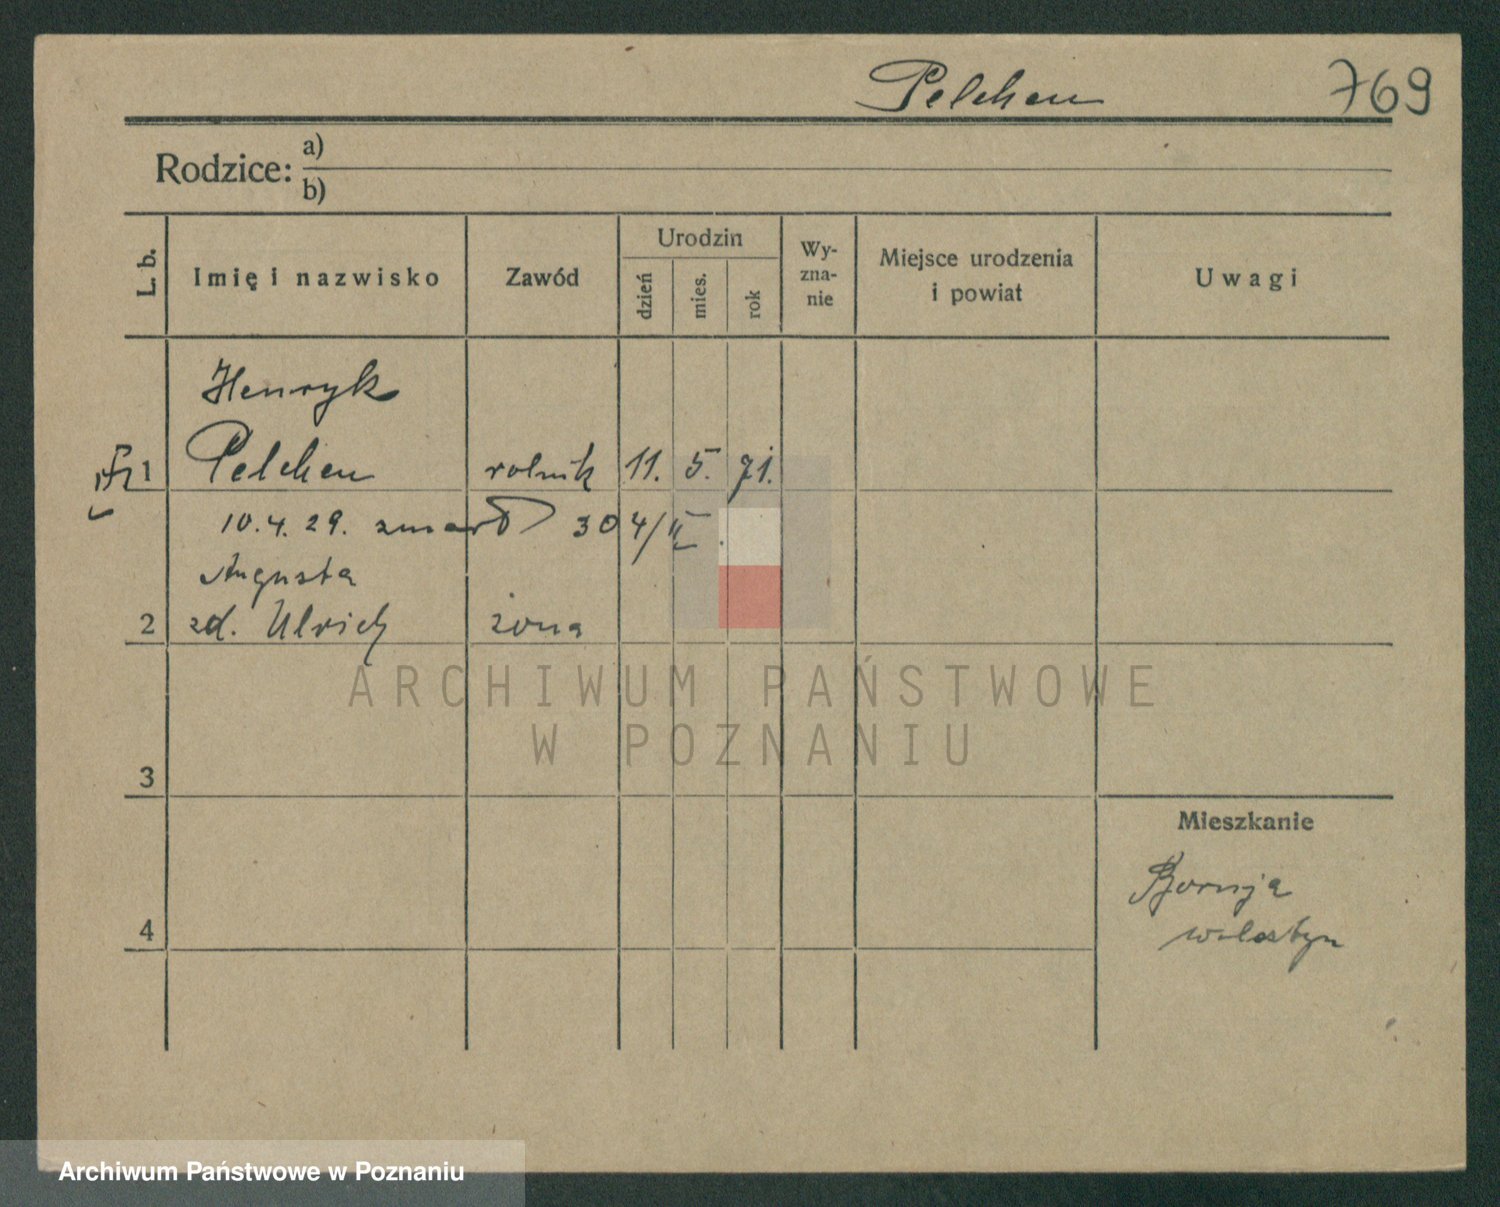 Pelchen 769
Rodzice: a)
b)
L. b. Imię i nazwisko Zawód Urodzin dzień mies. rok Wy-zna-nie Miejsce urodzenia i powiat Uwagi
Henryk
1 Pelchen rolnik 11. 5. 71.
10.4.29. zmarł 304/II
Augusta
2 zd. Ulrich żona
3
Mieszkanie
Boruja
4
ARCHIWUM PAŃSTWOWE
W POZNANIU
Archiwum Państwowe w Poznaniu